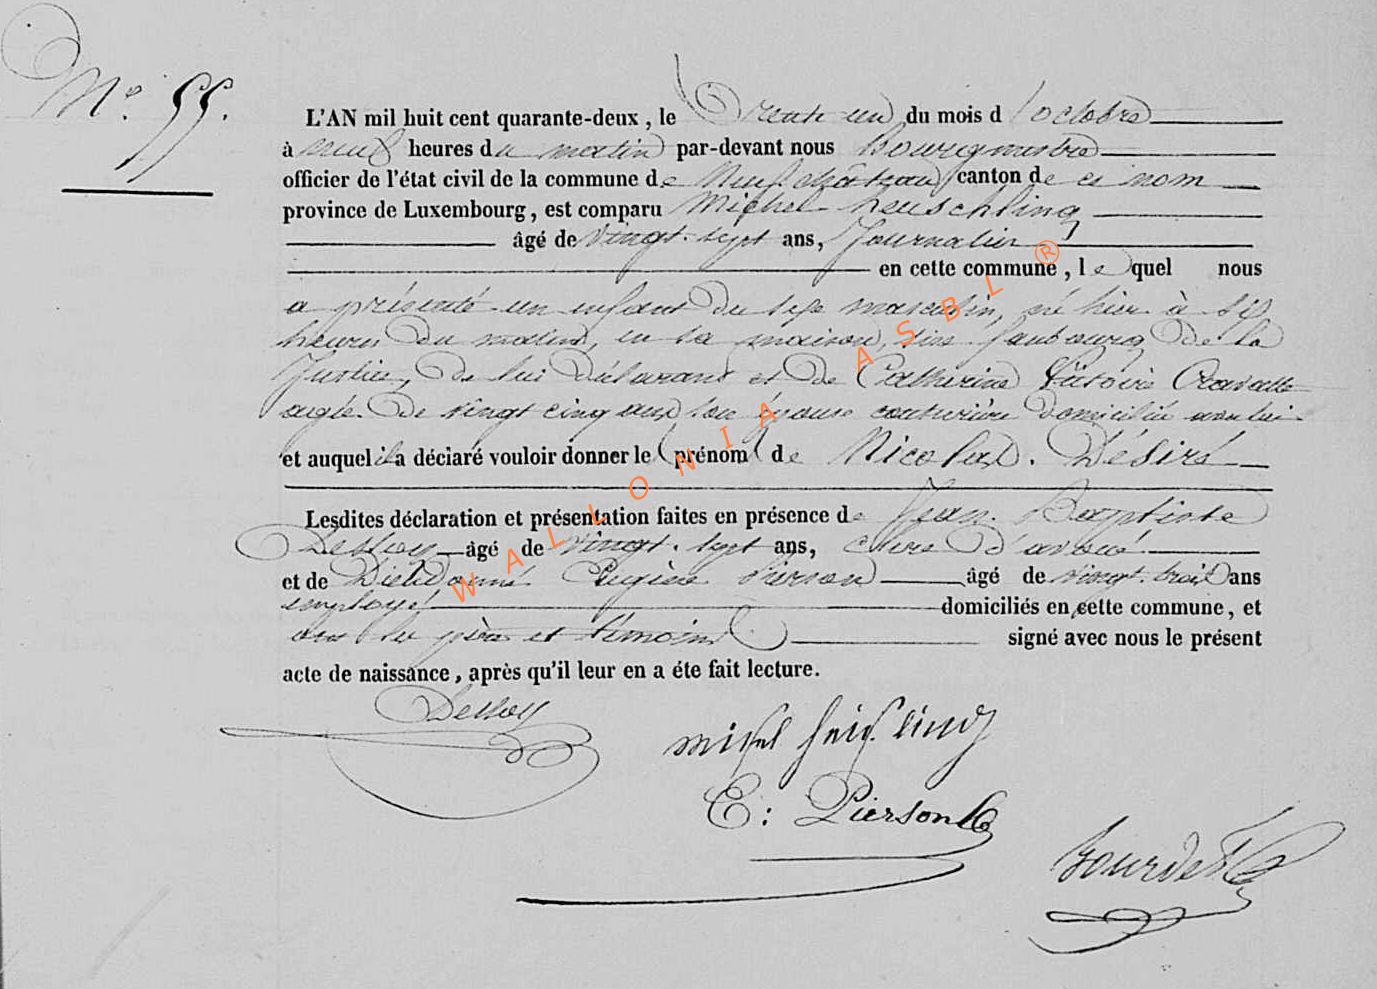 N.º 55.
L'AN mil huit cent quarante-deux, le Trente un du mois d'octobre
à neuf heures du matin par-devant nous Bourgmestre
officier de l'état civil de la commune de Neufchâteau canton de ce nom
province de Luxembourg, est comparu Michel heuschling
âgé de vingt-sept ans, Journalier
en cette commune, lequel nous
a présenté un enfant du sexe masculin, né hier à six
heures du matin, en sa maison, sise faubourg de la
Justice, de lui déclarant et de Catherine Victoire
agée de vingt cinq ans son épouse couturière domiciliée avec lui
et auquel il a déclaré vouloir donner le prénom de Nicolas. Désiré
Lesdites déclaration et présentation faites en présence de Jean Baptiste
Dessoy âgé de vingt-sept ans, clerc d'avoué
et de Dieudonné Eugène Pierson âgé de vingt-trois ans
employé domiciliés en cette commune, et
ont les père et témoins signé avec nous le présent
acte de naissance, après qu'il leur en a éte fait lecture.
Dessoy
E: Pierson
Bourdet
WALLONIA ASBL ®